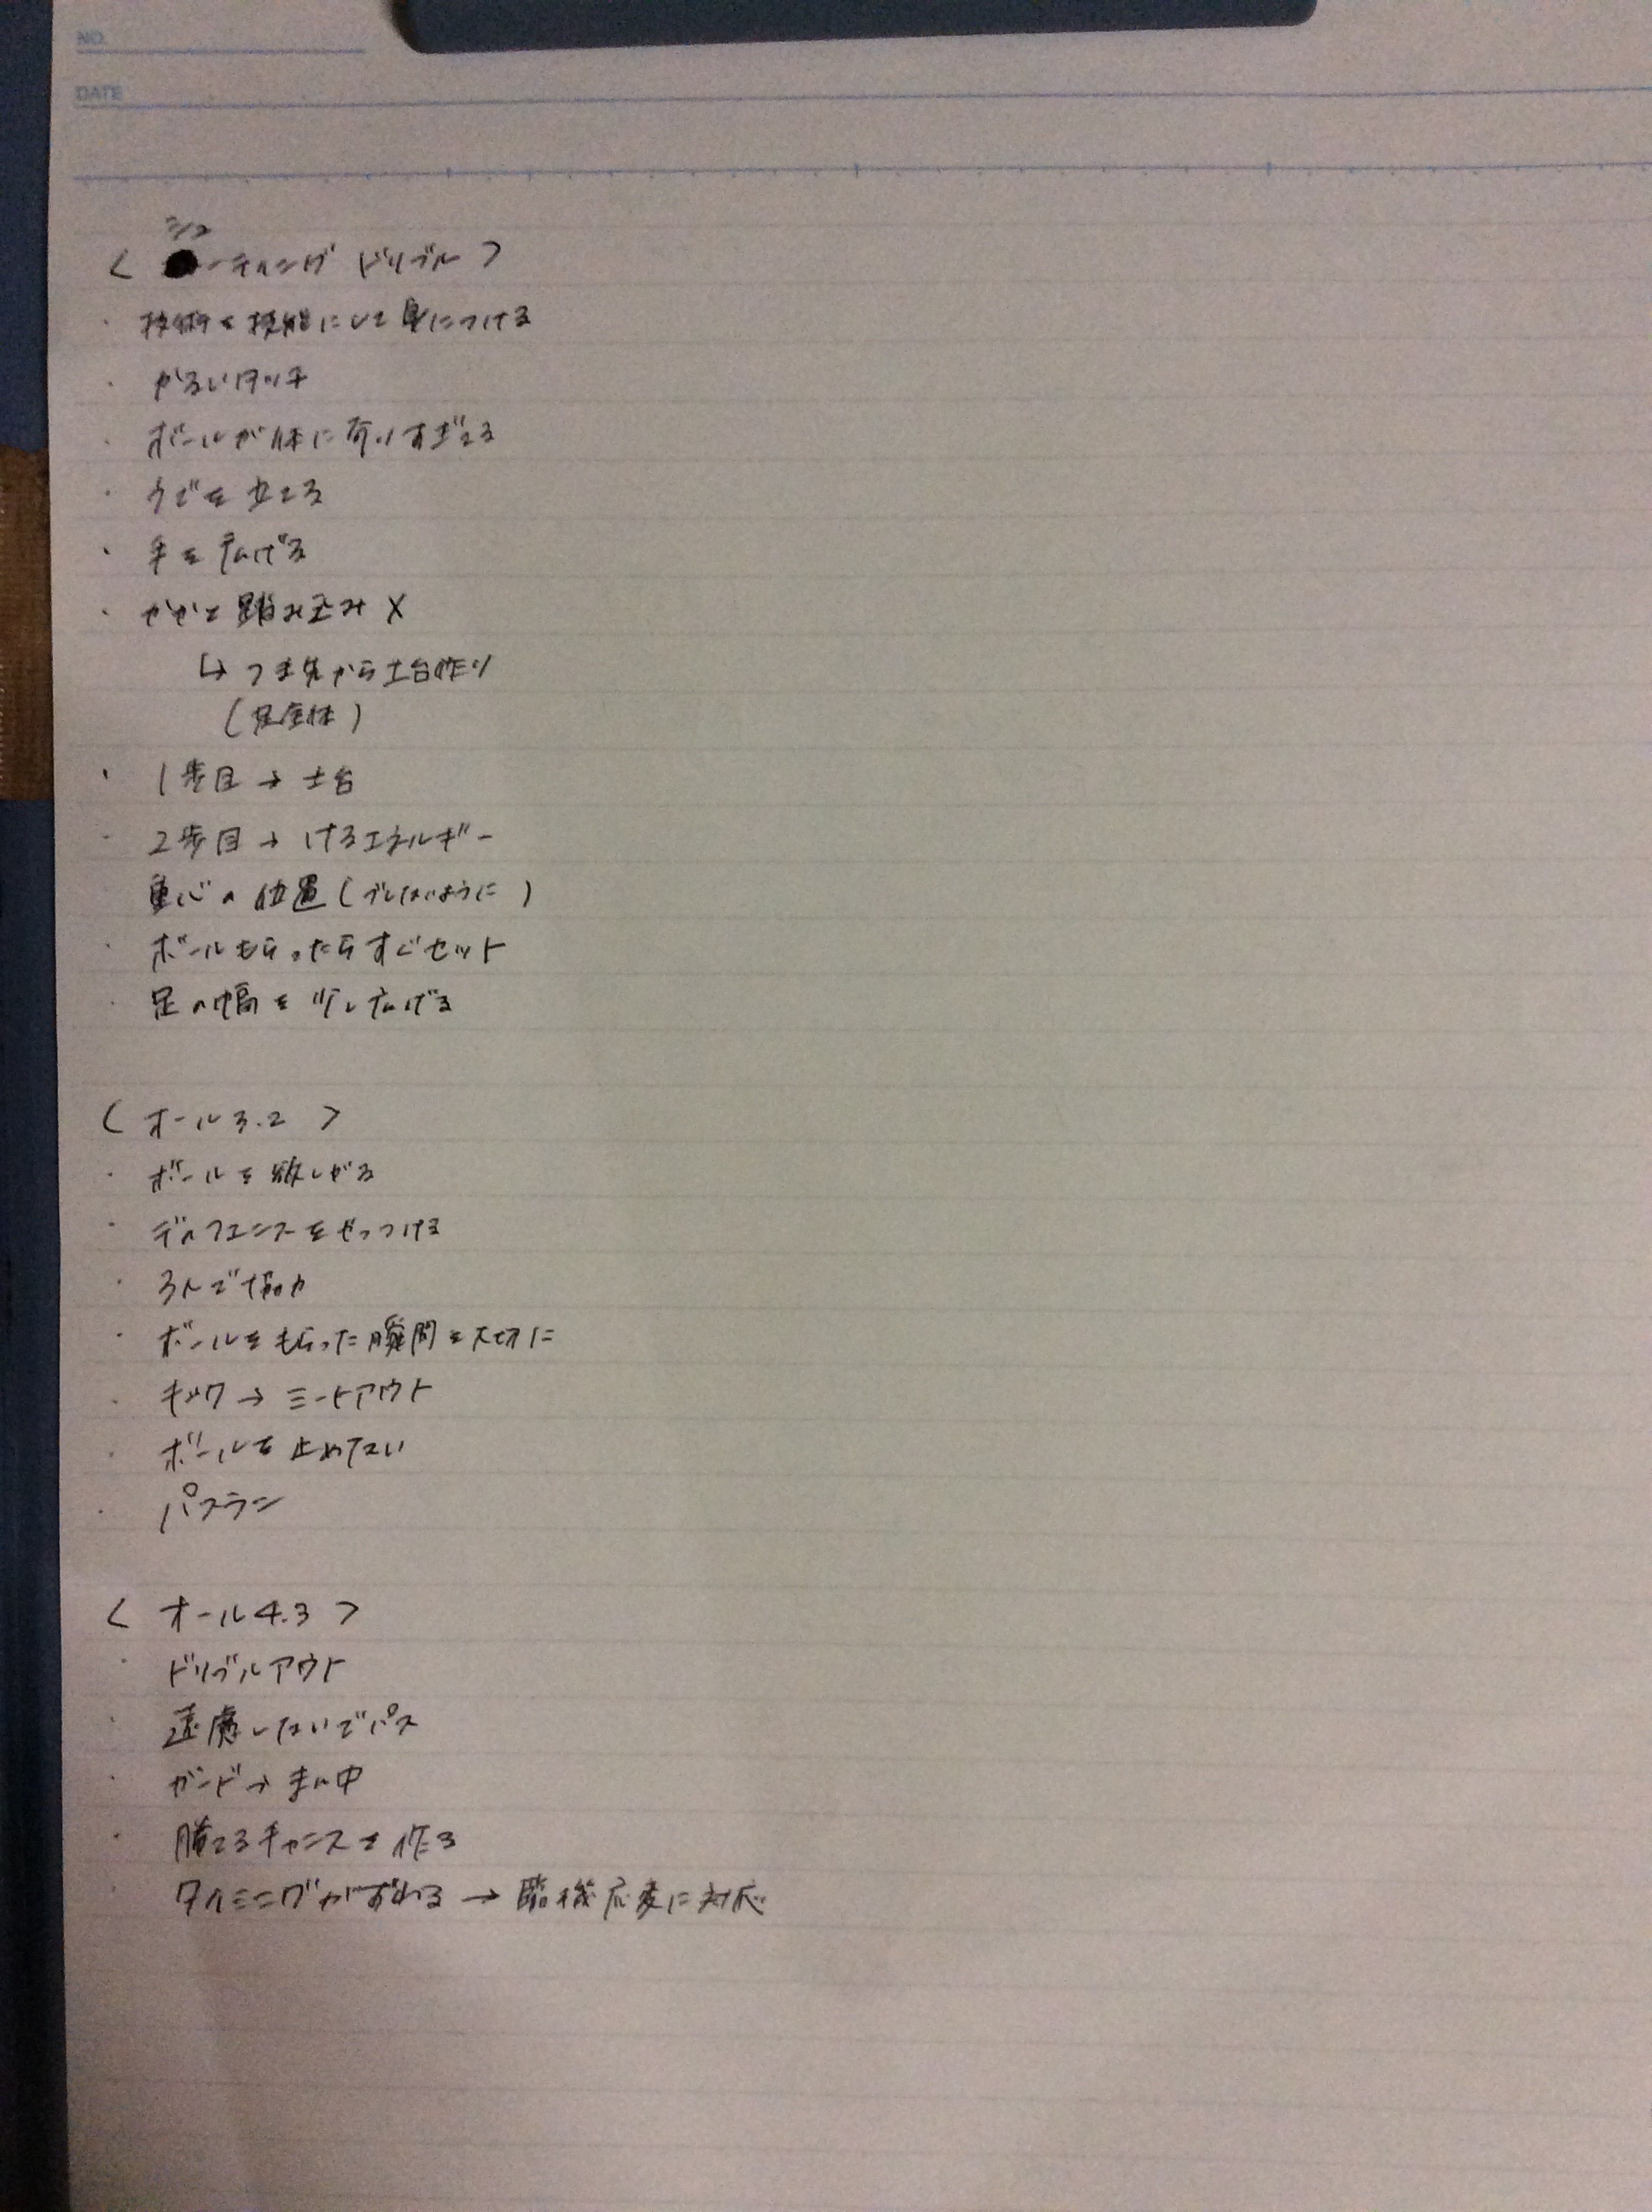 NO.
DATE
< シューティングドリブル >
・技術を技能にして身につける
・かるいタッチ
・ボールが体に寄りすぎてる
・うでを立てる
・手を広げる
・かかと踏み込み ×
↳ つま先から土台作り
(足全体)
・1歩目 → 土台
・2歩目 → けるエネルギー
重心の位置 (ブレないように)
・ボールもらったらすぐセット
・足の幅を少し広げる
< オール3.2 >
・ボールを欲しがる
・ディフェンスをやっつける
・3人で協力
・ボールをもらった瞬間を大切に
・キック → ミートアウト
・ボールを止めない
・パスラン
< オール4.3 >
・ドリブルアウト
・遠慮しないでパス
・ガード → まん中
・勝てるチャンスを作る
・タイミングがずれる → 臨機応変に対応